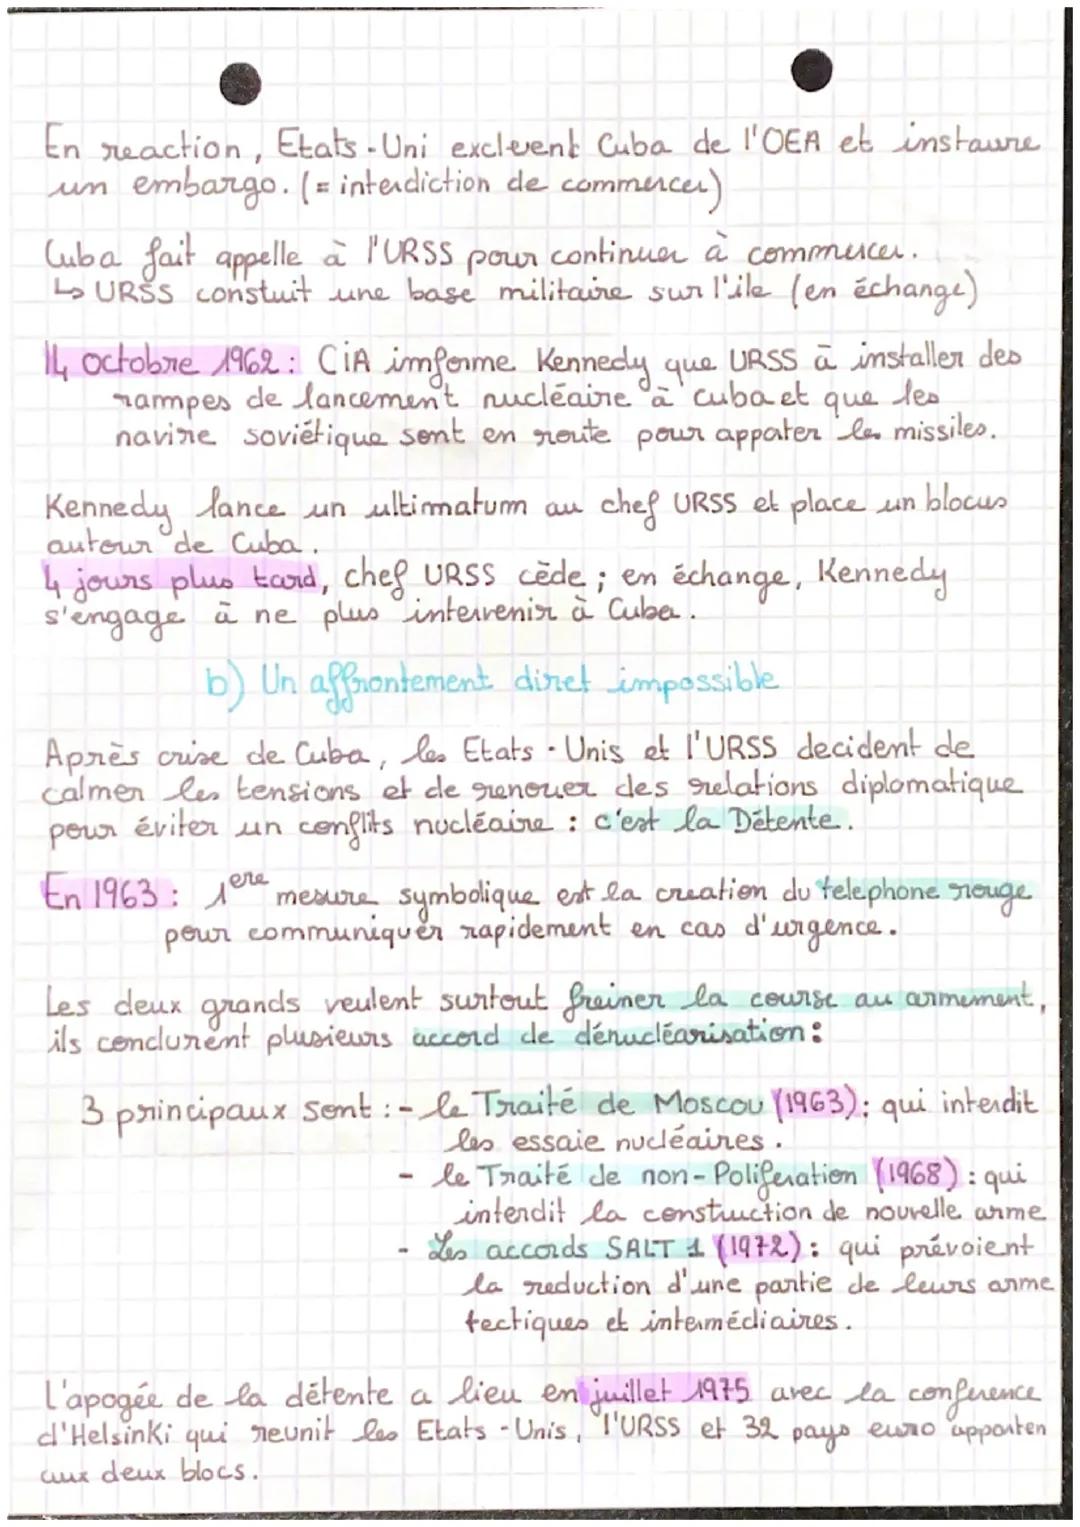 En reaction, Etats-Uni excluent Cuba de l'OEA et instaure
un embargo. (= interdiction de commercer)
Cuba fait appelle à l'URSS pour continuer à commercer.
↳ URSS constuit une base militaire sur l'ile (en échange)
14 octobre 1962 : CiA imforme Kennedy que URSS à installer des
rampes de lancement nucléaire à cuba et que les
navire soviétique sont en route pour appater les missiles.
Kennedy lance un ultimatum au chef URSS et place un blocus
autour de Cuba.
4 jours plus tard, chef URSS cède ; en échange, Kennedy
s'engage à ne plus intervenir à Cuba.
b) Un affrontement diret impossible
Après crise de Cuba, les Etats-Unis et l'URSS decident de
calmer les tensions et de renouer des relations diplomatique
pour éviter un conflits nucléaire : c'est la Détente.
En 1963 : 1ere mesure symbolique est la creation du telephone rouge
pour communiquer rapidement en cas d'urgence.
Les deux grands veulent surtout freiner la course au armement,
ils conclurent plusieurs accord de dénucléarisation :
3 principaux sont : - le Traité de Moscou (1963) : qui interdit
les essaie nucléaires.
- le Traité de non-Poliferation (1968) : qui
interdit la construction de nouvelle arme
- Les accords SALT 1 (1972) : qui prévoient
la reduction d'une partie de leurs arme
tectiques et intermédiaires.
L'apogée de la détente a lieu en juillet 1975 avec la conference
d'Helsinki qui reunit les Etats-Unis, l'URSS et 32 pays euro apparten
aux deux blocs.